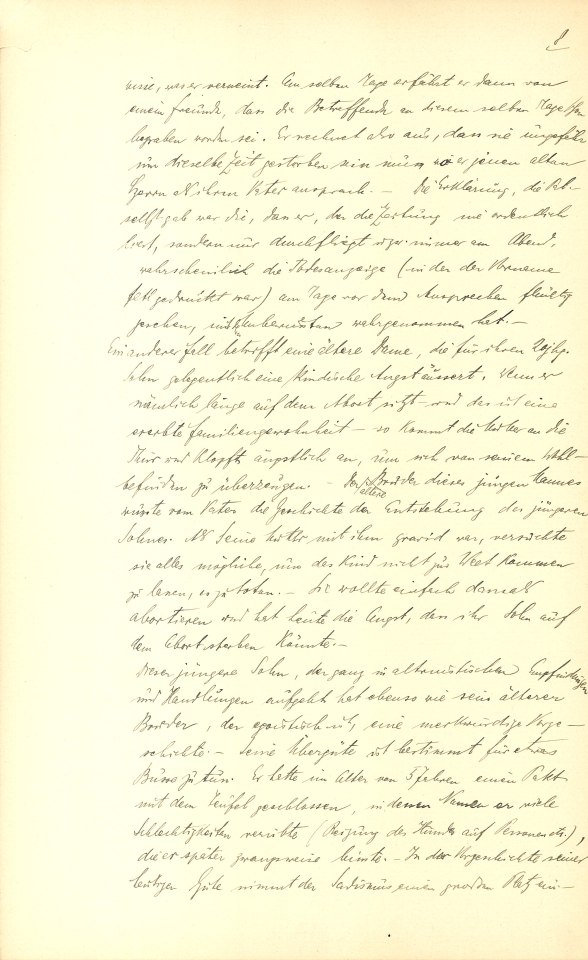 8
wisse, was er verneint. Am selben Tage erfährt er dann von
einem Freunde, dass die Betreffende an diesem selben Tage
begraben worden sei. Er rechnet also aus, dass sie ungefähr
um dieselbe Zeit gestorben sein muss wo er jenen alten
Herrn als ihren Vater ansprach. – Die Erklärung, die Pat.
selbst gab war die, dass er, der die Zeitung nie ordentlich
liest, sondern nur durchfliegt u. zw. immer am Abend,
wahrscheinlich die Todesanzeige (in der der Vorname
fett gedruckt war) am Tage vor dem Ansprechen flüchtig
gesehen, mit Unbewusstem wahrgenommen hat. –
Ein anderer Fall betrifft eine ältere Dame, die für ihren 20jhg.
Sohn gelegentlich eine kindische Angst äussert. Wenn er
nämlich lange auf dem Abort sitzt – und das ist eine
ererbte Familiengewohnheit – so kommt die Mutter an die
Thür und klopft ängstlich an, um sich von seinem Wohl-
befinden zu überzeugen. – Der ältere Bruder dieses jungen Mannes
wusste vom Vater die Geschichte der Entstehung des jüngeren
Sohnes. Als seine Mutter mit ihm gravid war, versuchte
sie alles mögliche, um das Kind nicht zur Welt kommen
zu lassen, es zu töten. – Sie wollte einfach damals
abortieren und hat heute die Angst, dass ihr Sohn auf
dem Abort sterben könnte. –
Dieser jüngere Sohn, der ganz in altruistischen Empfindungen
und Handlungen aufgeht hat ebenso wie sein älterer
Bruder, der egoistisch ist, eine merkwürdige Vorge-
schichte. – Seine Übergüte ist bestimmt für etwas
Busse zu tun. Er hatte im Alter von 5 Jahren einen Pakt
mit dem Teufel geschlossen, in dessen Namen er viele
Schlechtigkeiten verübte (Reizung des Hundes auf Personen etc.),
die er später zwangsweise büsste. – In der Vorgeschichte seiner
heutigen Güte nimmt der Sadismus einen grossen Platz ein. –